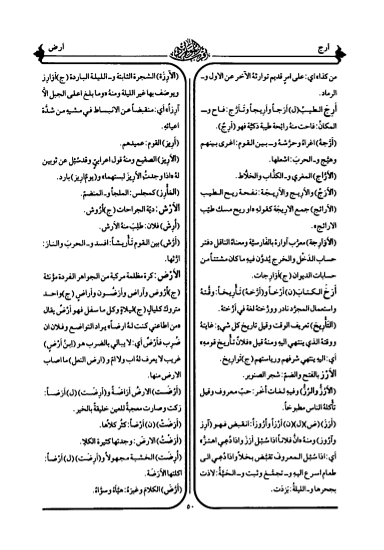 أرج
أرض
من كذا اي: على امرٍ قديم توارثهُ الآخر عن الاول و ـ
الرماد.
أَرِجَ الطيبُ (ل) أَرَجاً وأَرِيجاً وتَأَرَّج: فاح و ـ
المكانُ: فاحت منهُ رائحة طيبة ذكيَّة فهو (أَرِجٌ).
(أَرَّجَهُ) اغراهُ وحرَّشهُ و ـ بين القوم: اغرى بينهم
وهيَّج و ـ الحربَ: اشعلها.
(الأَرَّاج) المغري و ـ الكذَّاب والخلاَّط.
(الأَرَج) والأَرِيج والأَرِيجة: نفحة ريح الطيب
(الأرائج) جمع الاريجة كقولهِ «او ريح مسك طيّب
الارائج».
(الأَوَارِجة) معرَّب آوارة بالفارسيَّة ومعناهُ الناقل دفتر
حساب الدَّخل والخرج يُدوَّن فيهِ ما كان مشتتاً من
حسابات الديوان (ج) أَوَارِجات.
أَرَخَ الكتابَ (ن) أَرْخاً و (أرَّخهُ) تأريخاً: وقَّتهُ
واستعمال المجرَّد نادر وورَّخته لغة في أرَّخته.
(التأريخ) تعريف الوقت وقيل تاريخ كل شيءٍ: غايتهُ
ووقتهُ الذي ينتهي اليهِ ومنهُ قيل «فلان تأريخ قومهِ»
أي: اليهِ ينتهي شرفهم ورياستهم (ج) تَوَاريخ.
الأَرْز بالفتح والضمّ: شجر الصنوبر.
(الأُرْز والرُّز) وفيهِ لغات أُخر: حبّ معروف وقيل
تأكلهُ الناس مطبوخاً.
تأَرَّزَ: انقبض فهو (آرِز
وأَرُوز) ومنهُ «انَّ فلاناً اذا سُئِل أرَزَ واذا دُعِي اهتزَّ»
أي: اذا سُئل المعروفَ تقبَّض بخلاً واذا دُعي الى
طعام اسرع اليهِ و ـ تجمَّع وثبت و ـ الحيَّةُ: لاذت
بجحرها و ـ الليلةُ: بَرَدَت.
(الأَرِزَة) الشجرة الثابتة و ـ الليلة الباردة (ج) أَوَارِز
ويوصف بها غير الليلة ومنهُ «وما بلغ اعلى الجبل الاَّ
آرِزاً» أي: منقبضاً عن الانبساط في مشيهِ من شدَّة
اعيائهِ.
(أَرِيز) القوم: عميدهم.
(الأَرِيز) الصقيع ومنهُ قول اعرابيٍّ وقد سُئِل عن ثوبين
لهُ «اذا وجدتُ الأَرِيزَ لبستهما» و (يوم أَرِيز) بارد.
(المَأْرِز) كمجلس: الملجأ و ـ المنضمّ.
الأَرْش: ديّة الجراحات (ج) أُرُوش.
(أَرِش) فلان: طلب منهُ الأرش.
(أَرَّش) بين القوم تأريشاً: افسد و ـ الحربَ والنارَ:
ارَّثها.
الأَرْض: كرة مظلمة مركبة من الجواهر الفردة مؤنثة
(ج) أُرُوض وآراض وأَرَضُون وأَراضٍ (ج) واحد
متروك كلَيالٍ (ج) لَيْلاةٍ وكل ما سفل فهو أَرْض يقال
«من اطاعني كنت لهُ ارضاً» يراد التواضع و«فلان ان
ضُرِبَ فأَرْض» أي: لا يبالي بالضرب «هو (ابنُ أَرْضٍ)
غريب لا يعرف لهُ اب ولا امّ و (ارض النعل) ما اصاب
الارض منها.
(أَرُضَت) الارضُ أَرَاضةً و (أَرِضَت) (ل) أَرَضاً:
زكت وصارت معجبة للعين خليقة بالخير.
(أَرَضَت) (ن) أَرْضاً: كثر كلأها.
(أَرَضتُ) الارضَ: وجدتها كثيرة الكلأ.
(أُرِضَت) الخشبة مجهولاً و (أَرِضَت) (ل) أَرَضاً:
اكلتها الأَرَضَة.
(أَرَّضَ) الكلامَ وغيرهُ: هيَّأهُ وسوَّاهُ.
٥٠